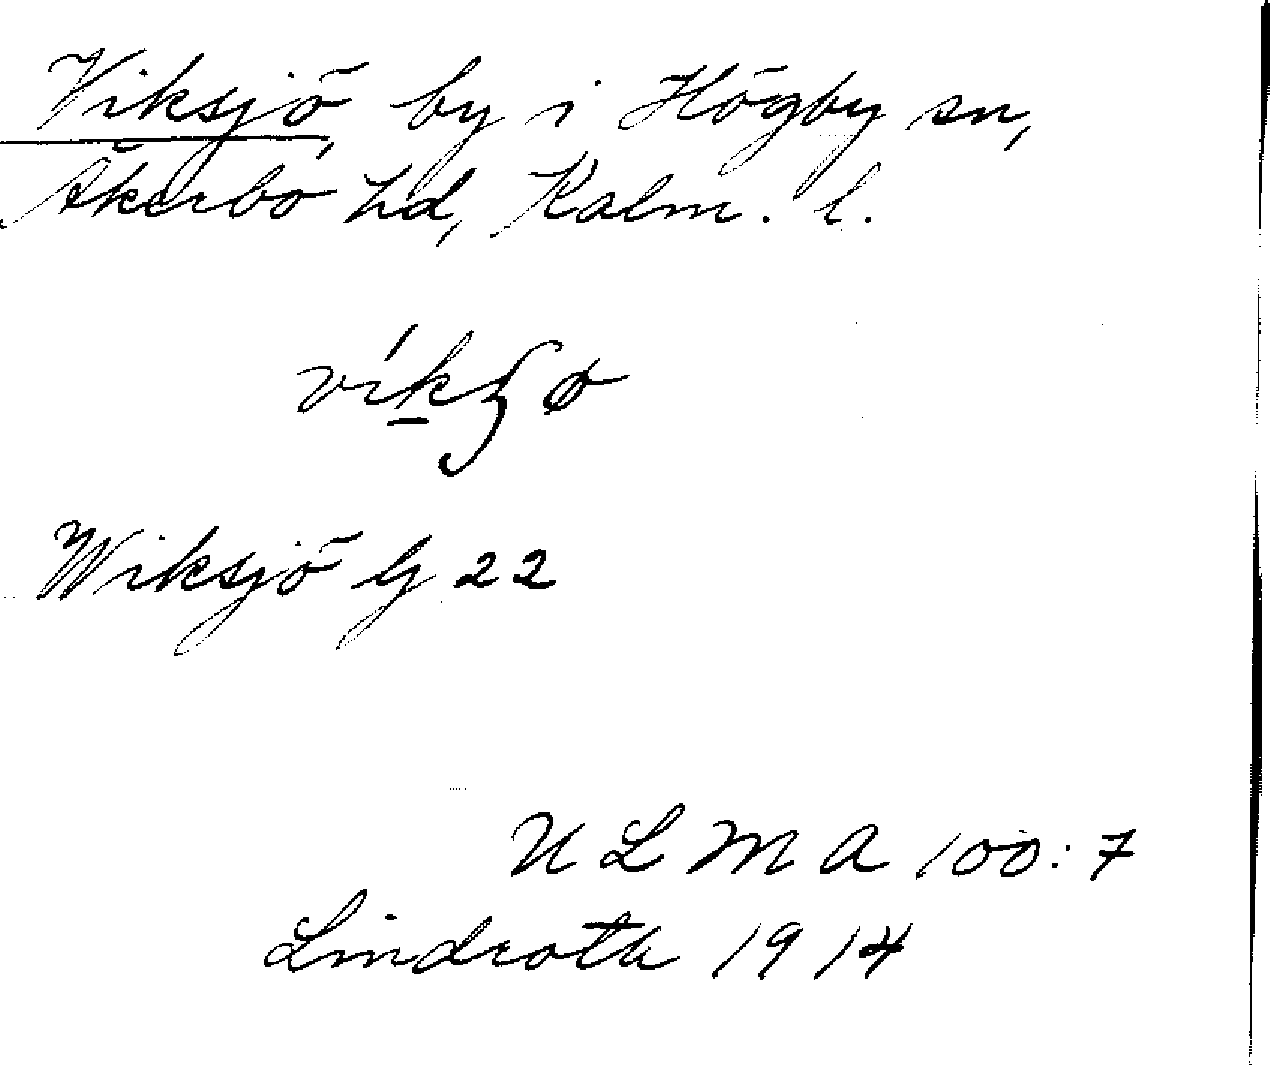 Viksjö, by i Högby sn,
Åkerbo hd, Kalm. l.
Wiksjö G 22
ULMA 100:7
Lindroth 1914